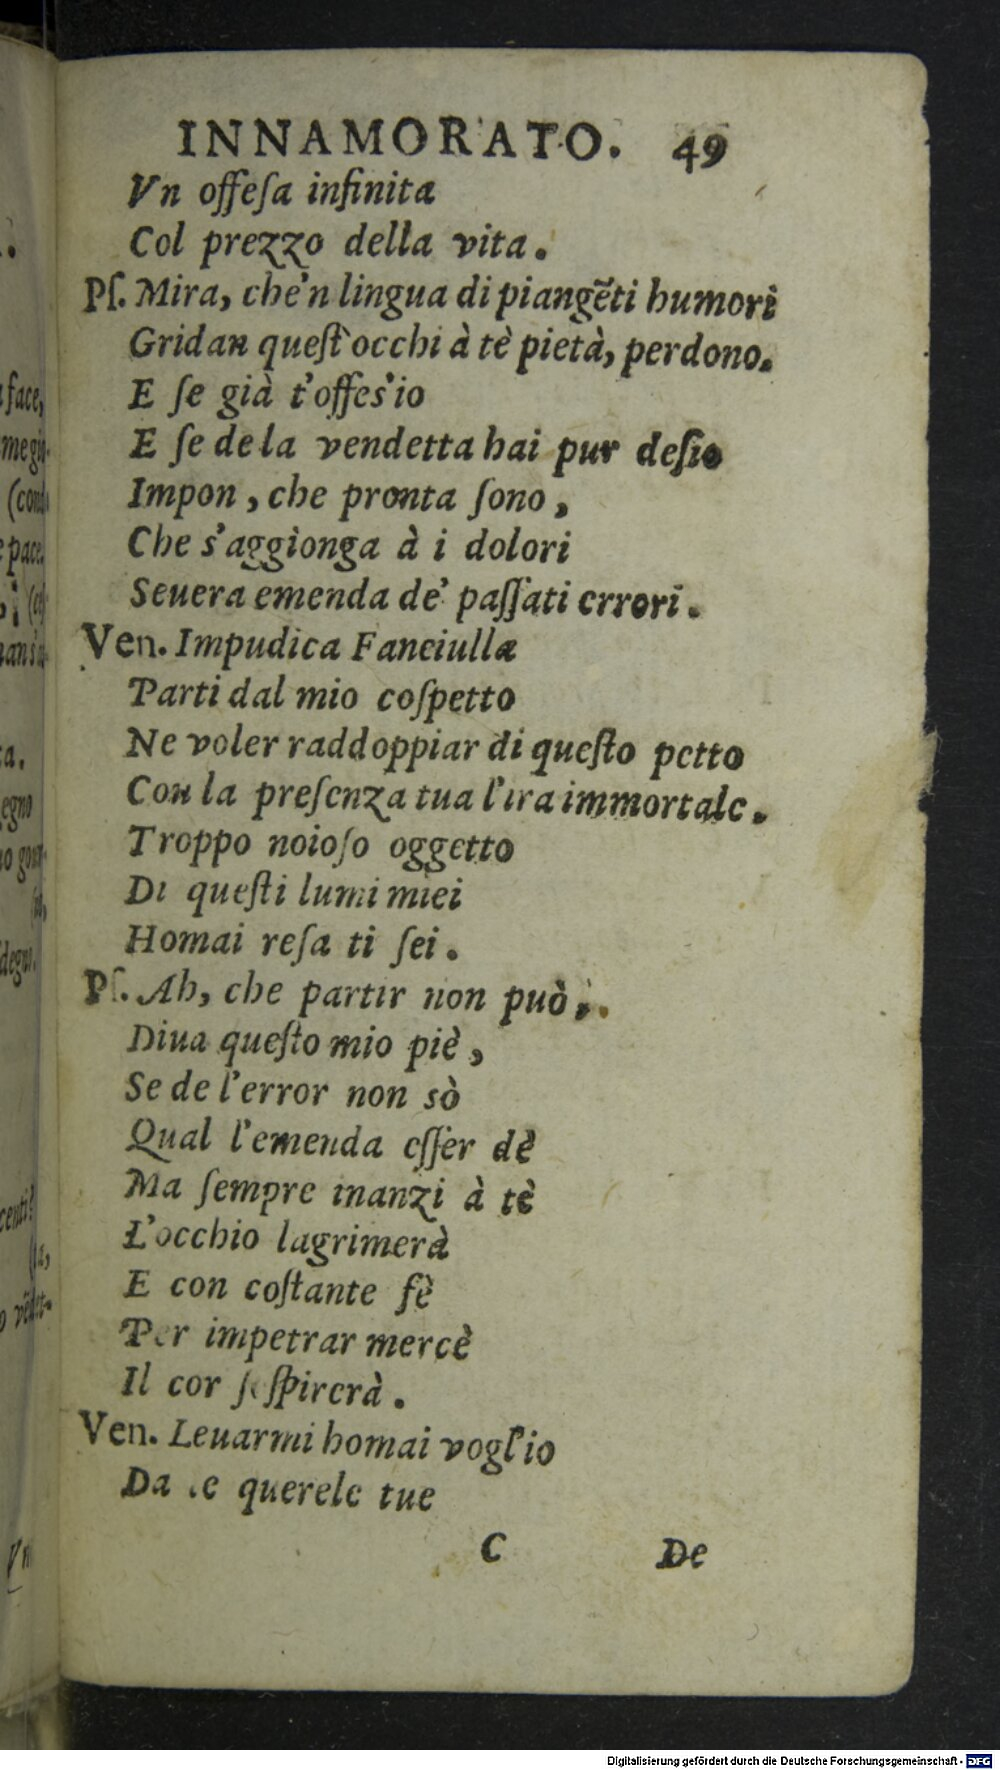 INNAMORATO. 49
Vn offeſa infinita
Col prezzo della vita.
Pſ. Mira, che'n lingua di piangẽti humori
Gridan queſt'occhi à tè pietà, perdono.
E ſe già t'offes'io
E ſe de la vendetta hai pur deſio
Impon, che pronta ſono,
Che s'aggionga à i dolori
Seuera emenda de' paſſati errori.
Ven. Impudica Fanciulla
Parti dal mio coſpetto
Ne voler raddoppiar di queſto petto
Con la preſenza tua l'ira immortale.
Troppo noioſo oggetto
Di queſti lumi miei
Homai reſa ti ſei.
Pſ. Ah, che partir non può,
Diua queſto mio piè,
Se de l'error non sò
Qual l'emenda eſſer dè
Ma ſempre inanzi à tè
L'occhio lagrimerà
E con coſtante fè
Per impetrar mercè
Il cor ſoſpirerà.
Ven. Leuarmi homai vogl'io
Da le querele tue
C De
face,
pace.
egno
Digitalisierung gefördert durch die Deutsche Forschungsgemeinschaft - DFG